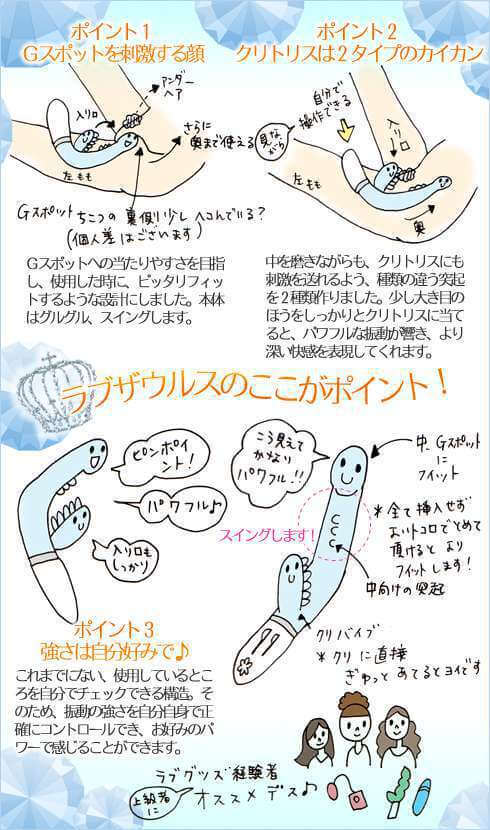 ポイント1
Gスポットを刺激する顔
アンダーヘア
入り口
さらに奥まで使える
左もも
Gスポット ちこつの裏側少しヘコんでいる?
(個人差はございます)
Gスポットへの当たりやすさを目指
し、使用した時に、ピッタリフィッ
トするような設計にしました。本体
はグルグル、スイングします。
ポイント2
クリトリスは2タイプのカイカン
自分で操作できる
見ながら
入り口
左もも
奥
中を磨きながらも、クリトリスにも
刺激を送れるよう、種類の違う突起
を2種類作りました。少し大き目の
ほうをしっかりとクリトリスに当て
ると、パワフルな振動が響き、より
深い快感を表現してくれます。
ラブザウルスのここがポイント!
ピンポイント!
パワフル♪
入り口もしっかり
こう見えて
かなり
パワフル!!
中、Gスポット
に
フィット
スイングします!
*全て挿入せず
よいトコロでとめて
頂けると より
フィットします!
中向けの突起
クリバイブ
*クリに直接
ぎゅっと あてるとヨイです
ポイント3
強さは自分好みで♪
これまでにない、使用しているとこ
ろを自分でチェックできる構造。そ
のため、振動の強さを自分自身で正
確にコントロールでき、お好みのパ
ワーで感じることができます。
ラブグッズ経験者
上級者に
オススメデス♪